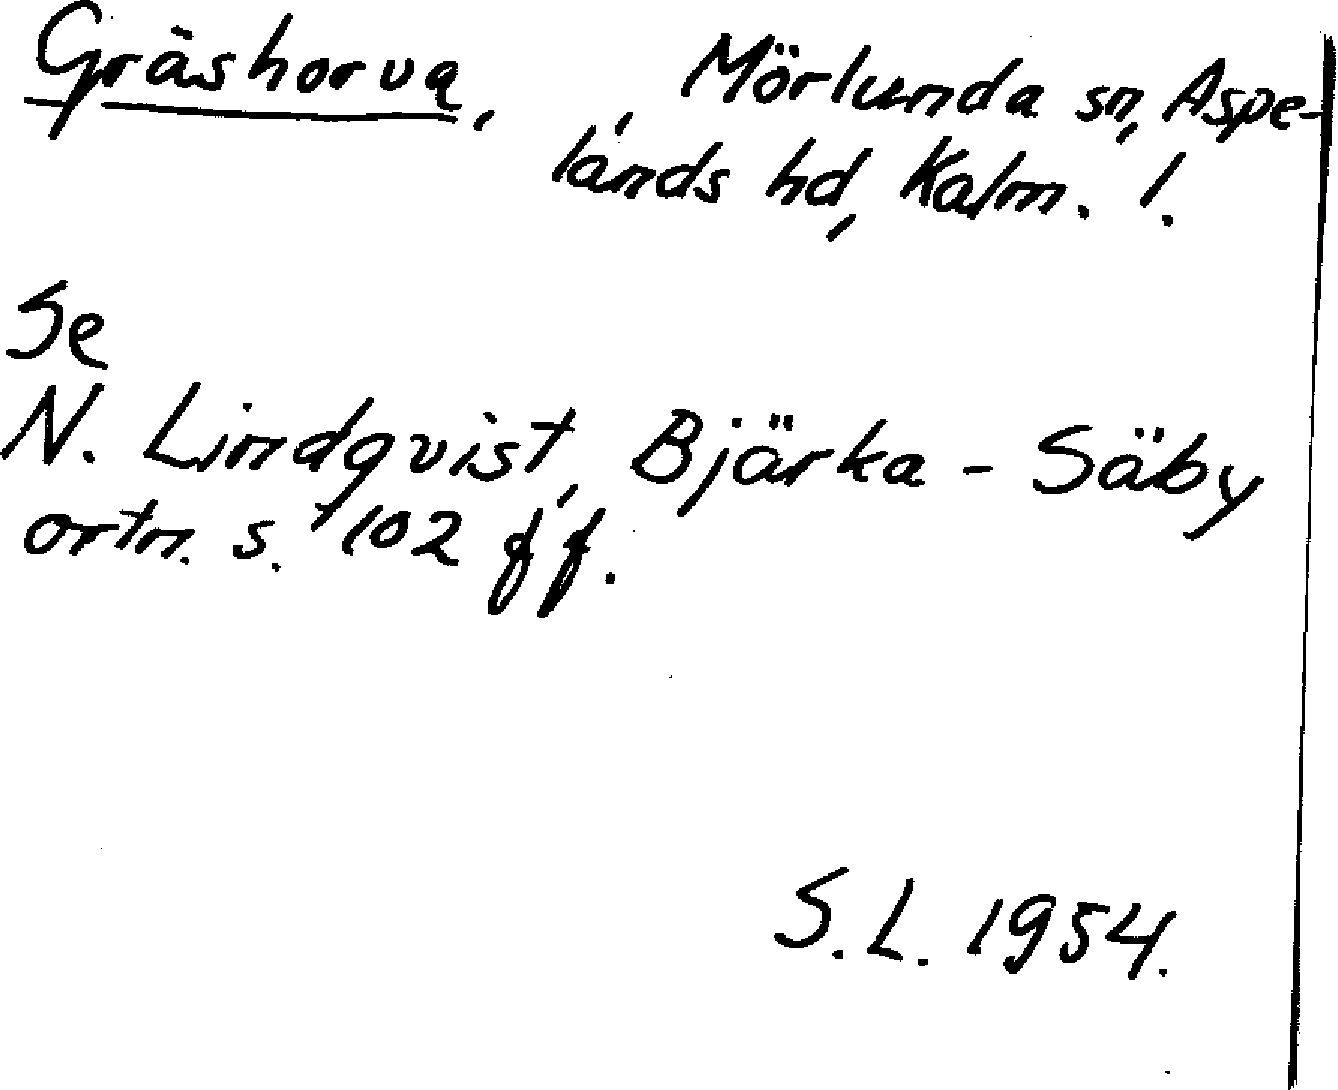 Gräshorva, Mörlunda sn, Aspe-
lands hd, Kalm. l.
Se
N. Lindqvist, Bjärka-Säby
ortn. s. 102 ff.
S.L. 1954.